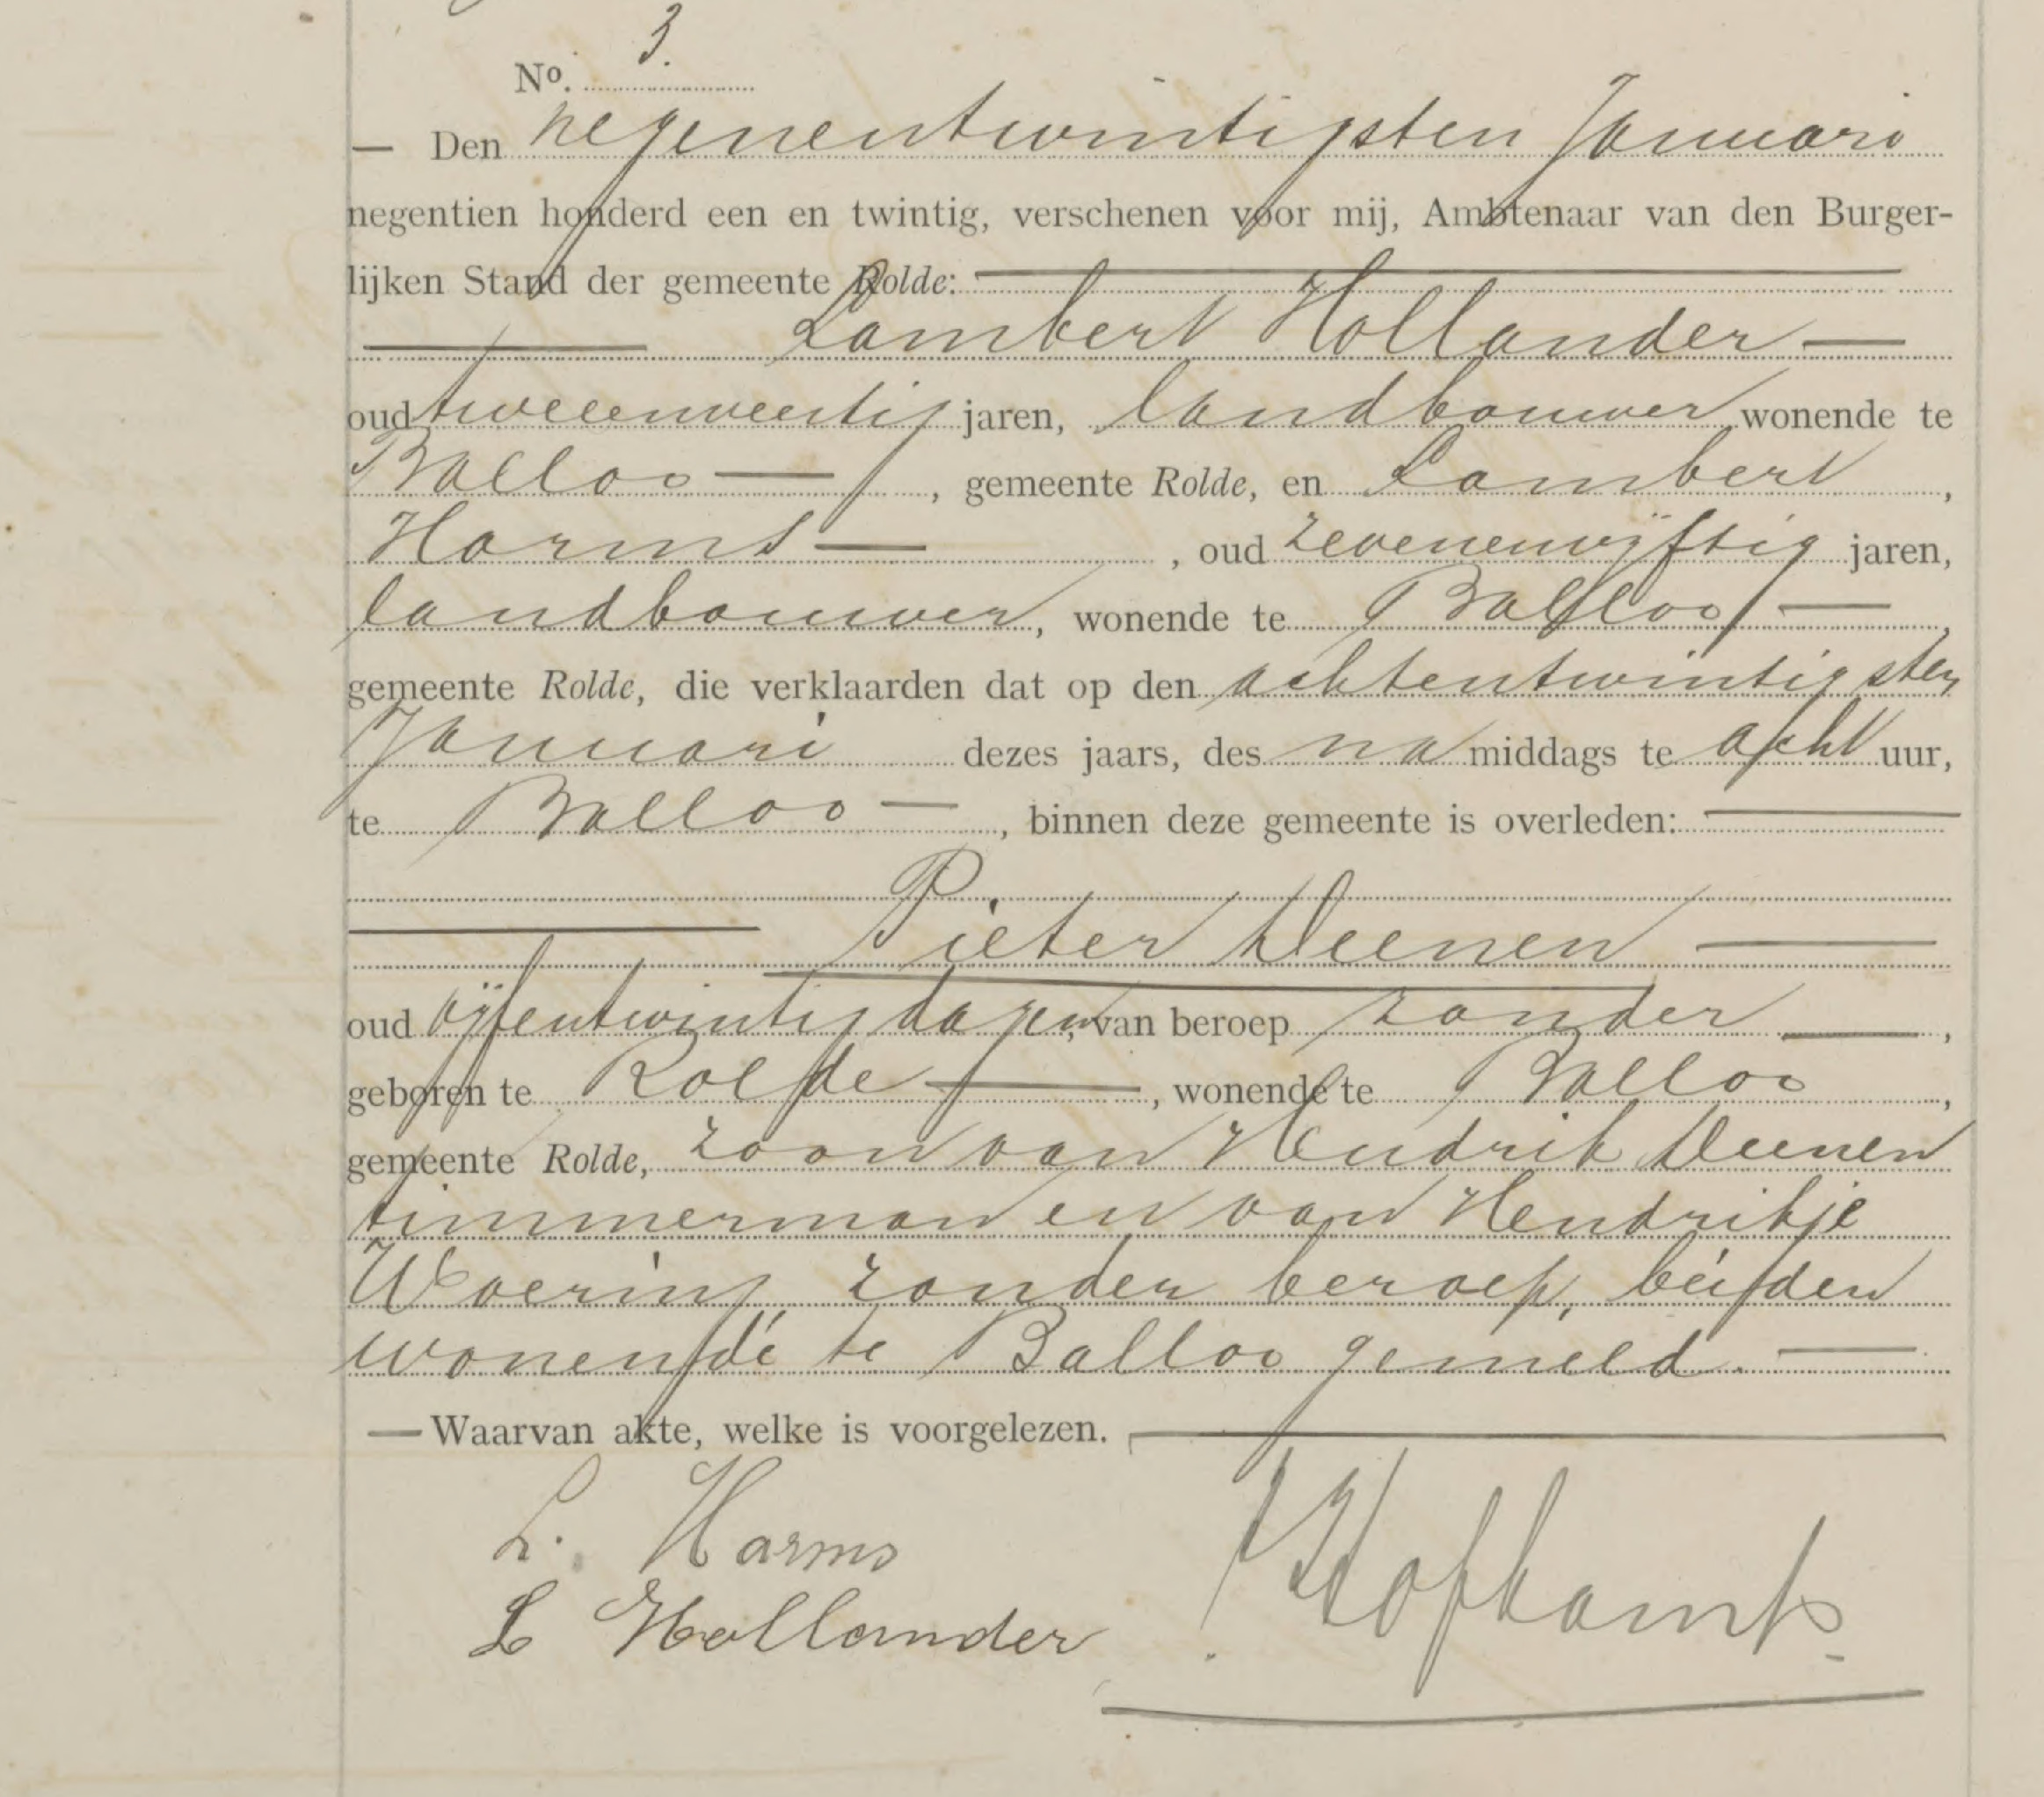 No. 3.
— Den negenentwintigsten Januari
negentien honderd een en twintig, verschenen voor mij, Ambtenaar van den Burger-
lijken Stand der gemeente Rolde:
Lambert Hollander —
oud tweeenveertig jaren, landbouwer wonende te
Balloo —, gemeente Rolde, en Lambert,
Harms —, oud zevenenvijftig jaren,
landbouwer, wonende te Balloo —,
gemeente Rolde, die verklaarden dat op den achtentwintigsten
Januari dezes jaars, des na middags te acht uur,
te Balloo —, binnen deze gemeente is overleden:
Pieter Deenen —
oud vijfentwintig dagen, van beroep zonder —,
geboren te Rolde —, wonende te Balloo,
gemeente Rolde, zoon van Hendrik Deenen
timmerman en van Hendrikje
Woering, zonder beroep, beiden
wonende te Balloo gemeld. —
— Waarvan akte, welke is voorgelezen.
L. Harms
L Hollander
Hofkamp